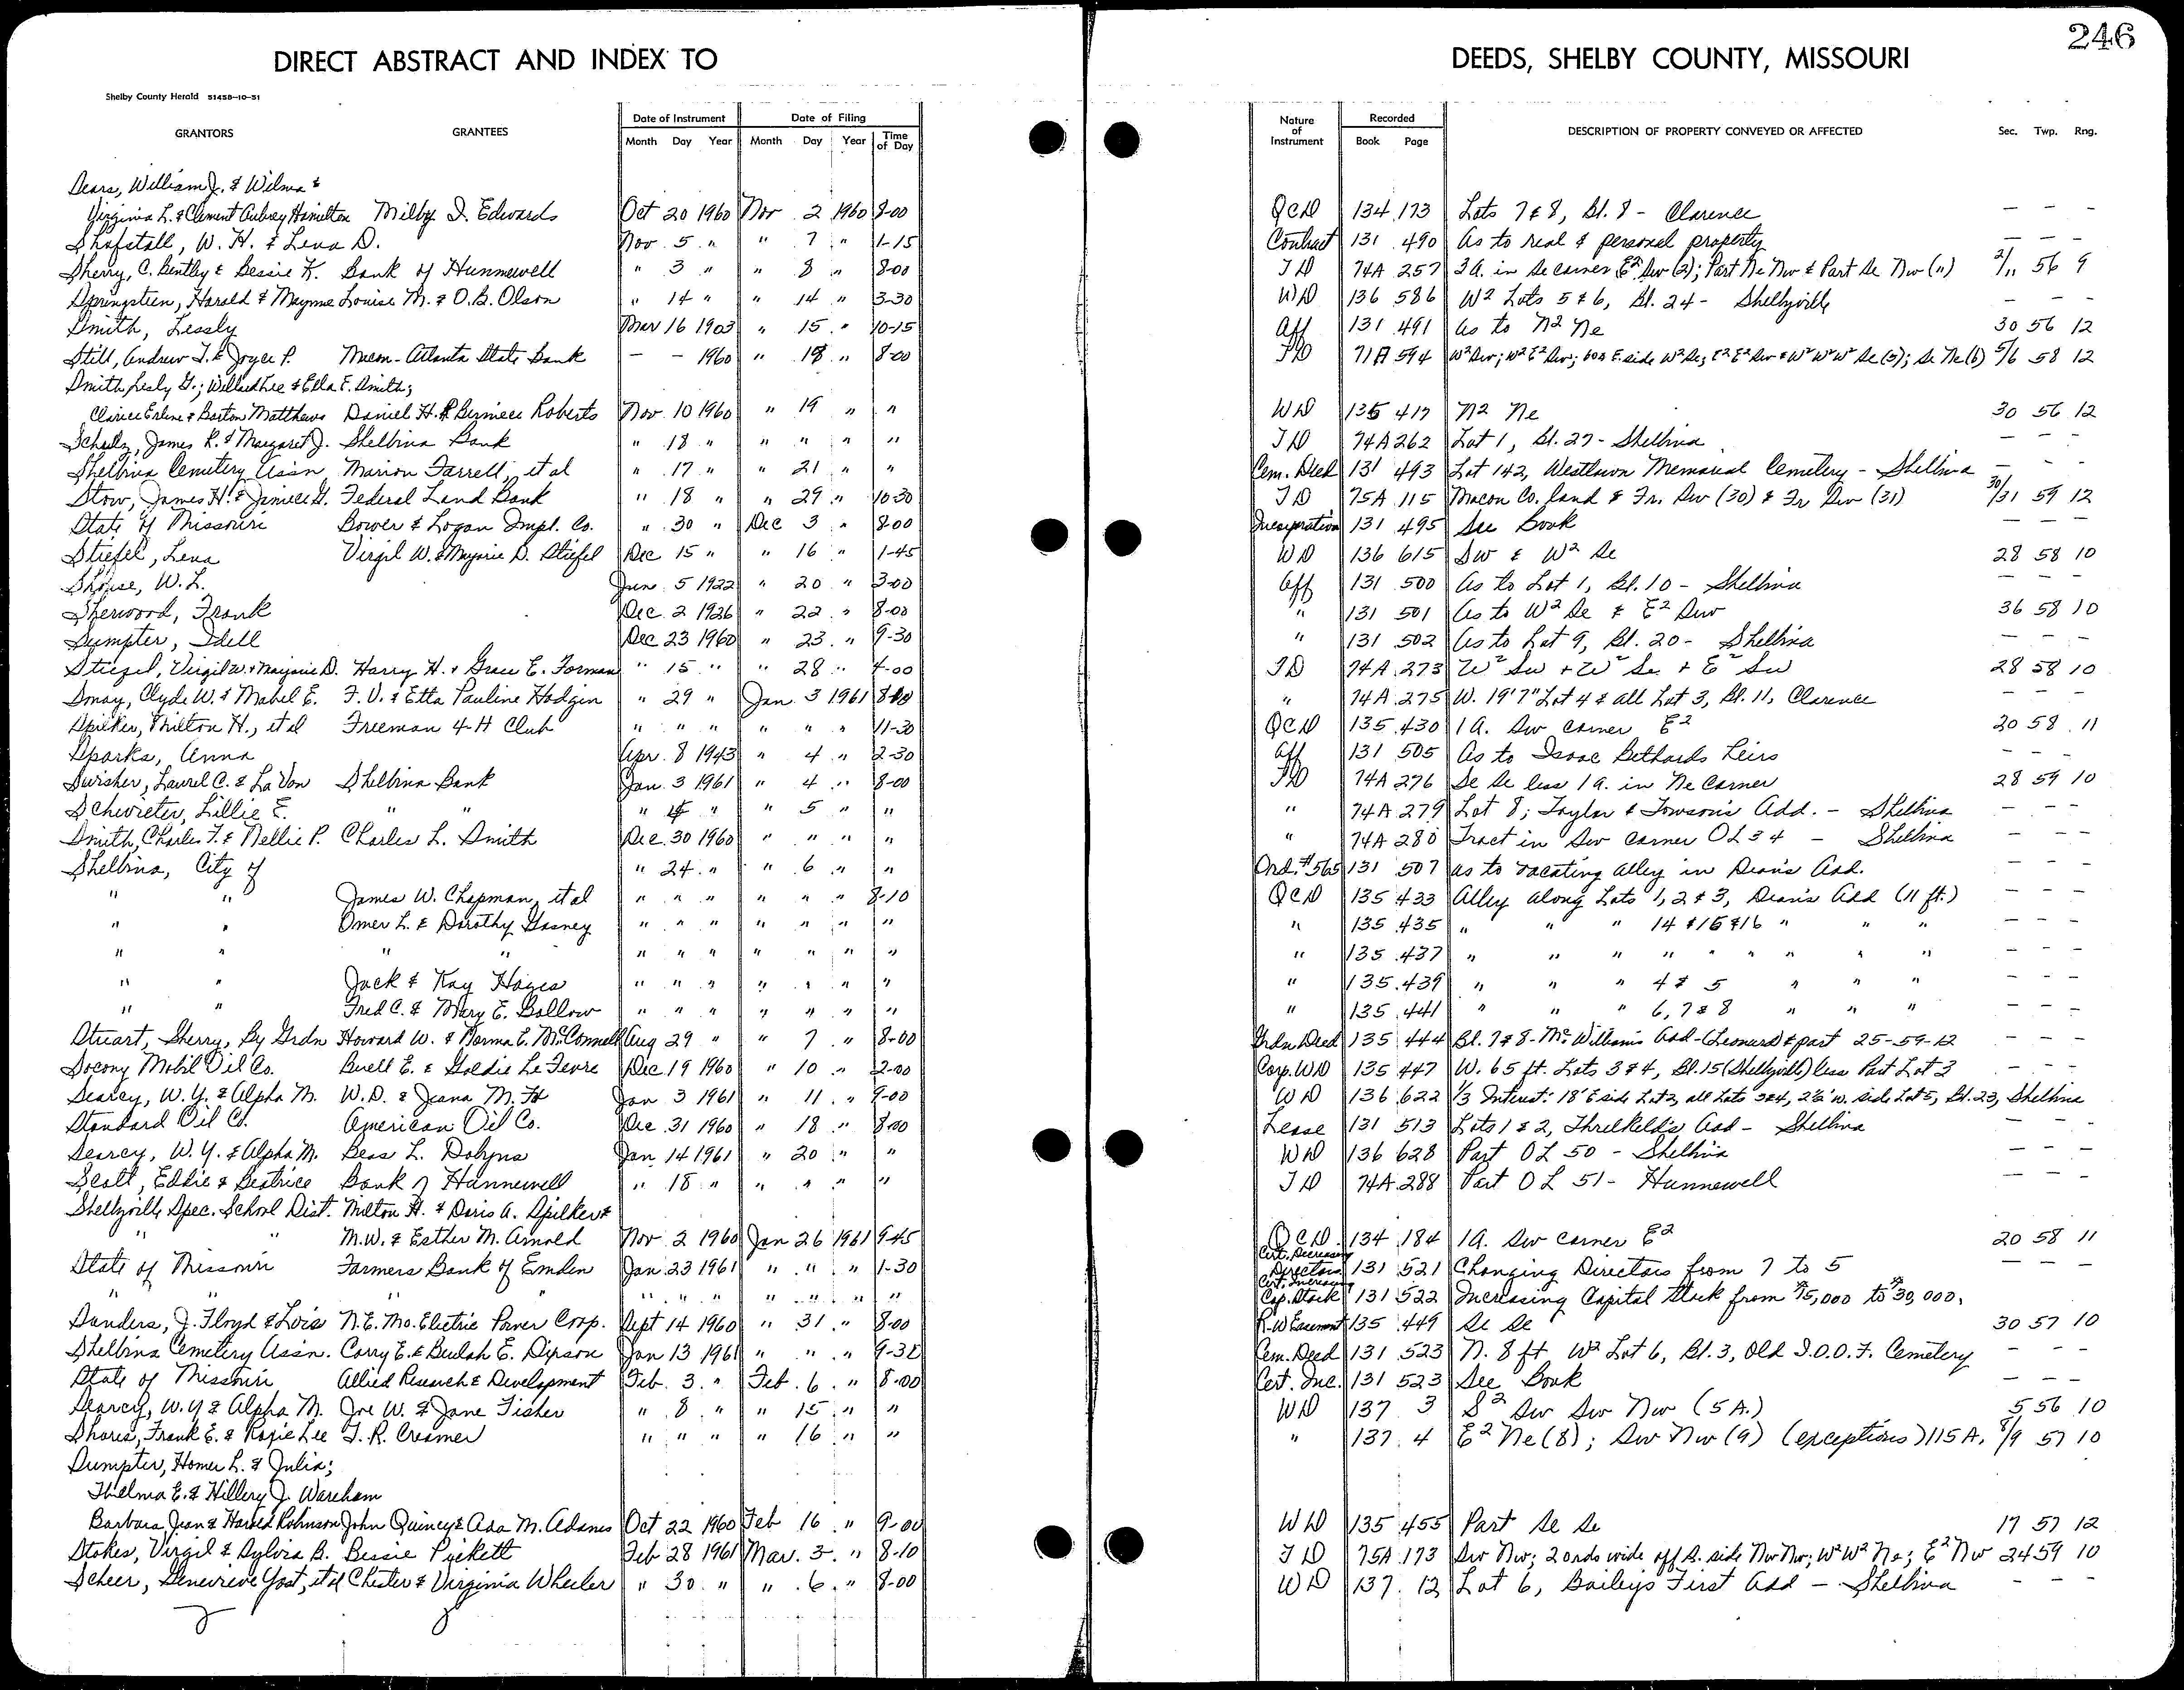 246
DIRECT ABSTRACT AND INDEX TO DEEDS, SHELBY COUNTY, MISSOURI
Shelby County Herald 51458-10-51
GRANTORS GRANTEES Date of Instrument Month Day Year Date of Filing Month Day Year Time of Day Nature of Instrument Recorded Book Page DESCRIPTION OF PROPERTY CONVEYED OR AFFECTED Sec. Twp. Rng.
Sears, William J. & Wilma &
Virginia L. & Clement Aubrey Hamilton Milby I. Edwards Oct 20 1960 Nov 2 1960 8-00 QCD 134 173 Lots 7 & 8, Bl. 8 - Clarence — — —
Shofstall, W. H. & Leva D. Nov. 5 " " 7 " 1-15 Contract 131 490 As to real & personal property — — —
Sherry, C. Bentley & Bessie K. Bank of Hunnewell " 3 " " 8 " 8-00 TD 74A 257 3 A. in Se corner E² Sw (2); Part Ne Nw & Part Se Nw (11) 2/11 56 9
Springsteen, Harold & Maymme Louise M. & O.B. Olson " 14 " " 14 " 3-30 WD 136 586 W² Lots 5 & 6, Bl. 24 - Shelbyville — — —
Smith, Lessly Mar 16 1903 " 15 " 10-15 Aff 131 491 As to N² Ne 30 56 12
Still, Andrew T. & Joyce P. Macon-Atlanta State Bank — — 1960 " 18 " 8-00 TD 71A 594 W² Sw; W² E² Sw; 60a E. side W² Se; E² E² Sw & W² W² W² Se (5); Se Ne (6) 5/6 58 12
Smith, Lesly G.; Willard Lee & Ella F. Smith;
Clarice Erlene & Barton Matthews Daniel H. & Berniece Roberts Nov. 10 1960 " 19 " " WD 135 417 N² Ne 30 56 12
Schultz, James R. & Margaret J. Shelbina Bank " 18 " " " " " TD 74A 262 Lot 1, Bl. 27 - Shelbina — — —
Shelbina Cemetery Assn Marion Farrell, et al " 17 " " 21 " " Cem. Deed 131 493 Lot 142, Westlawn Memorial Cemetery - Shelbina — — —
Stow, James H. & Janice G. Federal Land Bank " 18 " " 29 " 10-30 TD 75A 115 Macon Co. land & Fr. Sw (30) & Fr Sw (31) 30/31 59 12
State of Missouri Bower & Logan Impl. Co. " 30 " Dec 3 " 8-00 Incorporation 131 495 See Book — — —
Stiefel, Lena Virgil W. & Marjorie D. Stiefel Dec 15 " " 16 " 1-45 WD 136 615 SW & W² Se 28 58 10
Shouse, W. L. Jun. 5 1922 " 20 " 3-00 Aff 131 500 As to Lot 1, Bl. 10 - Shelbina — — —
Sherwood, Frank Dec. 2 1926 " 22 " 8-00 " 131 501 As to W² Se & E² Sw 36 58 10
Sumpter, Idell Dec 23 1960 " 23 " 9-30 " 131 502 As to Lot 9, Bl. 20 - Shelbina — — —
Stiefel, Virgil W. & Marjorie D. Harry H. & Grace E. Forman " 15 " " 28 " 4-00 TD 74A 273 W² Sw + W² Se + E² Sw 28 58 10
Smay, Clyde W. & Mabel E. F. V. & Etta Pauline Hodgin " 29 " Jan. 3 1961 8-00 " 74A 275 W. 19'7" Lot 4 & all Lot 3, Bl. 11, Clarence — — —
Spilker, Milton H., et al Freeman 4-H Club " " " " " " 11-30 QCD 135 430 1 A. Sw corner E² 20 58 11
Sparks, Anna Apr. 8 1943 " 4 " 2-30 Aff 131 505 As to Isaac Bethards Heirs — — —
Swisher, Laurel C. & LaVon Shelbina Bank Jan. 3 1961 " 4 " 8-00 TD 74A 276 Se Se less 1 a. in Ne Corner 28 59 10
Schwieter, Lillie E. " " " " " 5 " " " 74A 279 Lot 8; Taylor & Towson's Add. - Shelbina — — —
Smith, Charles F. & Nellie P. Charles L. Smith Dec. 30 1960 " " " " " 74A 280 Tract in Sw corner OL 34 - Shelbina — — —
Shelbina, City of " 24 " " 6 " " Ord. #565 131 507 As to vacating alley in Dean's Add. — — —
" " James W. Chapman, et al " " " " " " 8-10 QCD 135 433 Alley along Lots 1, 2 & 3, Dean's Add (11 ft.) — — —
" " Omer L. & Dorothy Gosney " " " " " " " " 135 435 " " " 14 & 15 & 16 " " " — — —
" " " " " " " " " " " " 135 437 " " " " " " " " " — — —
" " Jack & Kay Hayes " " " " " " " " 135 439 " " " 4 & 5 " " " — — —
" " Fred C. & Mary E. Ballow " " " " " " " " 135 441 " " " 6, 7 & 8 " " " — — —
Stuart, Sherry, By Grdn Howard W. & Norma L. McConnell Aug 29 " " 7 " 8-00 Grdn Deed 135 444 Bl. 7 & 8 - McWilliams Add - (Leonard) & part 25-59-12 — — —
Socony Mobil Oil Co. Buell E. & Goldie LeFevre Dec. 19 1960 " 10 " 2-00 Corp. WD 135 447 W. 65 ft. Lots 3 & 4, Bl. 15 (Shelbyville) less Part Lot 3 — — —
Searcy, W. Y. & Alpha M. W.D. & Jeana M. Jan 3 1961 " 11 " 9-00 WD 136 622 1/3 Interest: 18' E side Lot 2, all Lots 3 & 4, 2½' W. side Lot 5, Bl. 23, Shelbina
Standard Oil Co. American Oil Co. Dec. 31 1960 " 18 " 8-00 Lease 131 513 Lots 1 & 2, Threlkeld's Add - Shelbina — — —
Searcy, W. Y. & Alpha M. Bess L. Dobyns Jan. 14 1961 " 20 " " WD 136 628 Part OL 50 - Shelbina — — —
Scott, Eddie & Beatrice Bank of Hunnewell " 18 " " " " " TD 74A 288 Part OL 51 - Hunnewell — — —
Shelbyville Spec. School Dist. Milton H. & Doris A. Spilker &
" " M.W. & Esther M. Arnold Nov. 2 1960 Jan 26 1961 9-45 QCD 134 184 1 A. Sw corner E² 20 58 11
State of Missouri Farmers Bank of Emden Jan 23 1961 " " " 1-30 Cert. Decreasing Directors 131 521 Changing Directors from 7 to 5 — — —
" " " " " " " " " " Cert. Increasing Cap. Stock 131 522 Increasing Capital Stock from $15,000 to $30,000.
Sanders, J. Floyd & Lois N.E. Mo. Electric Power Coop. Sept 14 1960 " 31 " 8-00 R-W Easement 135 449 Se Se 30 57 10
Shelbina Cemetery Assn. Corry E. & Beulah E. Dixson Jan 13 1961 " " " 9-30 Cem. Deed 131 523 N. 8 ft W² Lot 6, Bl. 3, Old I.O.O.F. Cemetery — — —
State of Missouri Allied Research & Development Feb. 3 " Feb. 6 " 8-00 Cert. Inc. 131 523 See Book — — —
Searcy, W. Y & Alpha M. Joe W. & Jane Fisher " 8 " " 15 " " WD 137 3 S² Sw Sw Nw (5 A.) 5 56 10
Shores, Frank E. & Rosie Lee T. R. Creamer " " " " 16 " " " 137 4 E² Ne (8); Sw Nw (9) (exceptions) 115 A. 8/9 57 10
Sumpter, Homer L. & Julia;
Thelma E. & Hillery J. Wareham
Barbara Jean & Harold Robinson John Quincy & Ada M. Adams Oct 22 1960 Feb 16 " 9-00 WD 135 455 Part Se Se 17 57 12
Stokes, Virgil & Sylvia B. Bessie Puckett Feb 28 1961 Mar. 3 " 8-10 TD 75A 173 Sw Nw; 2 rods wide off S. side Nw Nw; W² W² Ne; E² Nw 24 59 10
Scheer, Genevieve Yost, et al Chester & Virginia Wheeler " 30 " " 6 " 8-00 WD 137 12 Lot 6, Bailey's First Add - Shelbina — — —